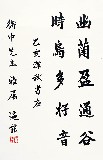 幽蘭盈通谷
時鳥多好音
乙亥秋書
中先生雅屬